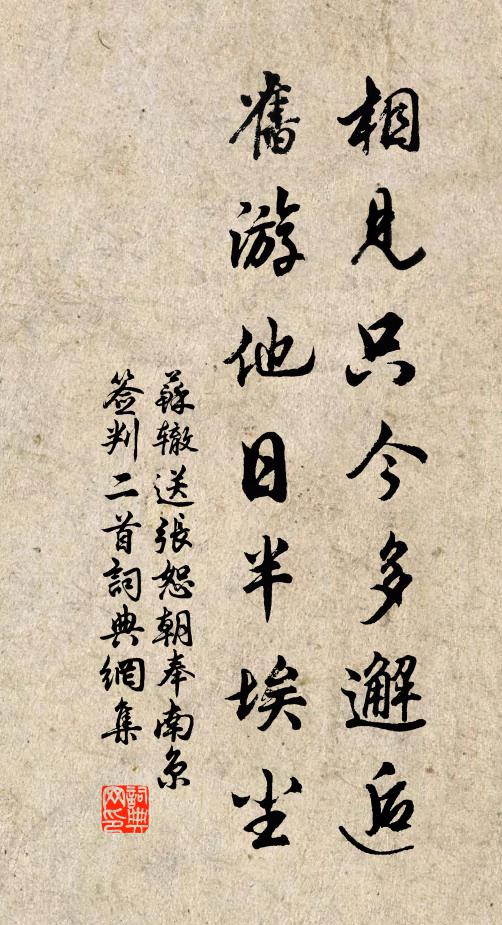 相見只今多邂逅
舊游他日半埃尘
蘇辙送張恕朝奉南京
签判二首詞典網集
詞典网印